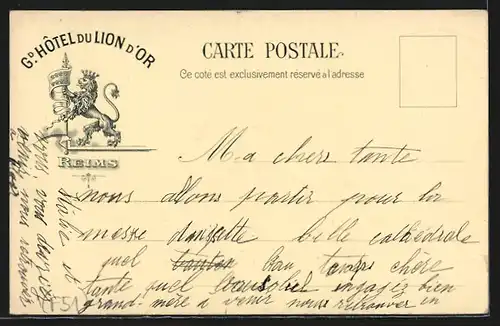 Gᴰ HÔTEL DU LION D'OR
REIMS
CARTE POSTALE
Ce coté est exclusivement réservé à l'adresse
Ma chère tante
nous allons partir pour la
messe dans cette belle cathédrale
quel beau temps chère
tante quel engagez bien
grand-mère à venir nous retrouver en
(F51